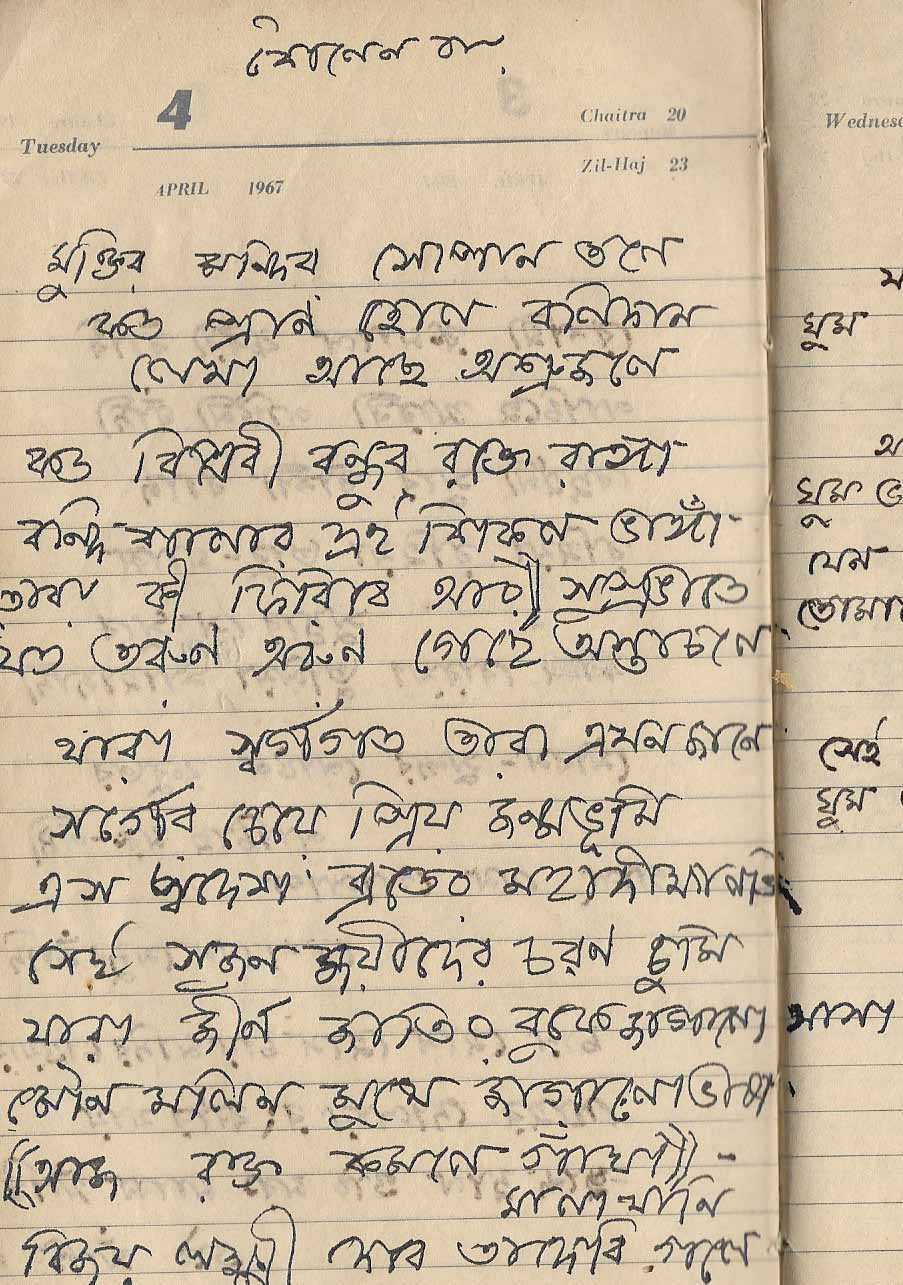 4
Chaitra 20
Tuesday
Wednes
Zil-Haj 23
APRIL 1967
মুক্তির মন্দির সোপান তলে
কত প্রাণ হোল বলিদান
লেখা আছে অশ্রুজলে
কত বিপ্লবী বন্ধুর রক্তে রাঙ্গা
বন্দি শালার ঐ শিকল ভাঙ্গা
তারা কী ফিরিবে আর সুপ্রভাতে
যত তরুণ অরুণ গেছে অস্তাচলে
যারা স্বর্গগত তারা এখন জানে
সর্গের চেয়ে প্রিয় জন্মভূমি
এস স্বদেশ ব্রতের মহাদীক্ষা লভি
সেই মৃত্যুঞ্জয়ীদের চরণ চুমি
যারা জীর্ণ জাতির বুকে জাগালো আশা
মৌন মলিন মুখে জাগালো ভাষা
আজ রক্ত কমলে গাঁথা
মাল্য খানি
বিজয় লক্ষ্মী দেবে তাদেরি গলে
ঘুম
ঘুম
যেন
তোমা
সেই
ঘুম